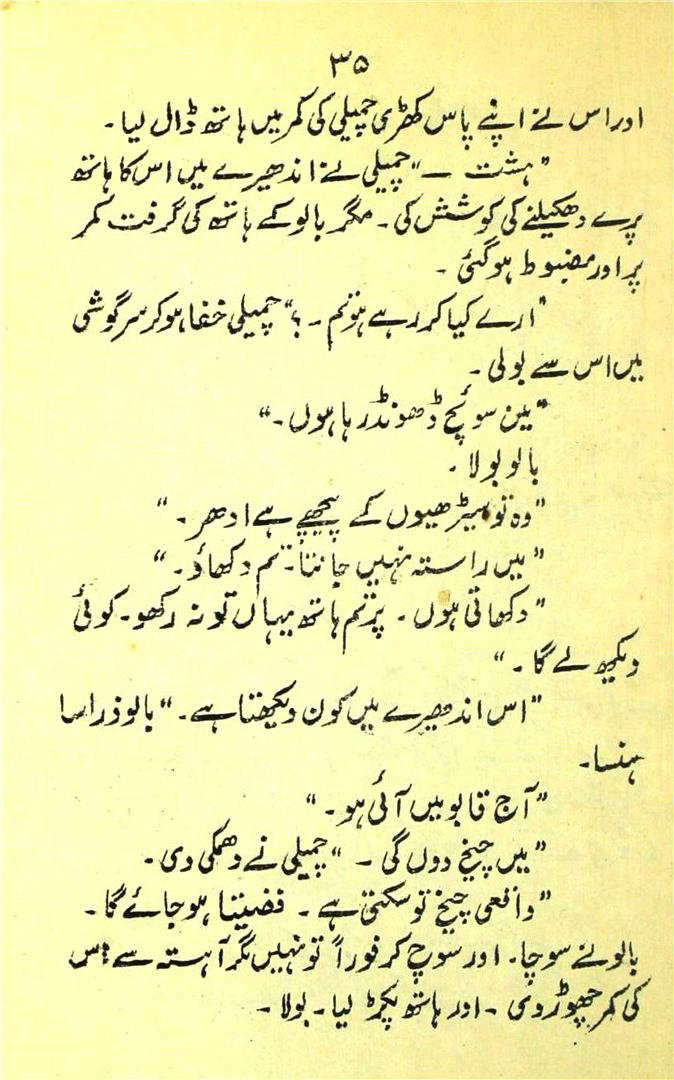 ۳۵
اور اس نے اپنے پاس کھڑی چمپلی کی کمر میں ہاتھ ڈال لیا۔
"ہشت — " چمپلی نے اندھیرے میں اس کا ہاتھ
پرے دھکیلنے کی کوشش کی۔ مگر بالو کے ہاتھ کی گرفت کمر
پر اور مضبوط ہو گئی۔
"ارے کیا کر رہے ہو تم۔؟" چمپلی خفا ہو کر سرگوشی
میں اس سے بولی۔
"میں سوئچ ڈھونڈ رہا ہوں۔"
بالو بولا۔
"وہ تو سیڑھیوں کے پیچھے ہے ادھر۔"
"میں راستہ نہیں جانتا۔ تم دکھاؤ۔"
"دکھاتی ہوں۔ پر تم ہاتھ یہاں تو نہ رکھو۔ کوئی
دیکھ لے گا۔"
"اس اندھیرے میں کون دیکھتا ہے۔" بالو ذرا سا
ہنسا۔
"آج قابو میں آئی ہو۔"
"میں چیخ دوں گی۔" چمپلی نے دھمکی دی۔
"واقعی چیخ تو سکتی ہے۔ فضیتا ہو جائے گا۔
بالو نے سوچا۔ اور سوچ کر فوراً تو نہیں مگر آہستہ سے اس
کی کمر چھوڑ دی۔ اور ہاتھ پکڑ لیا۔ بولا۔